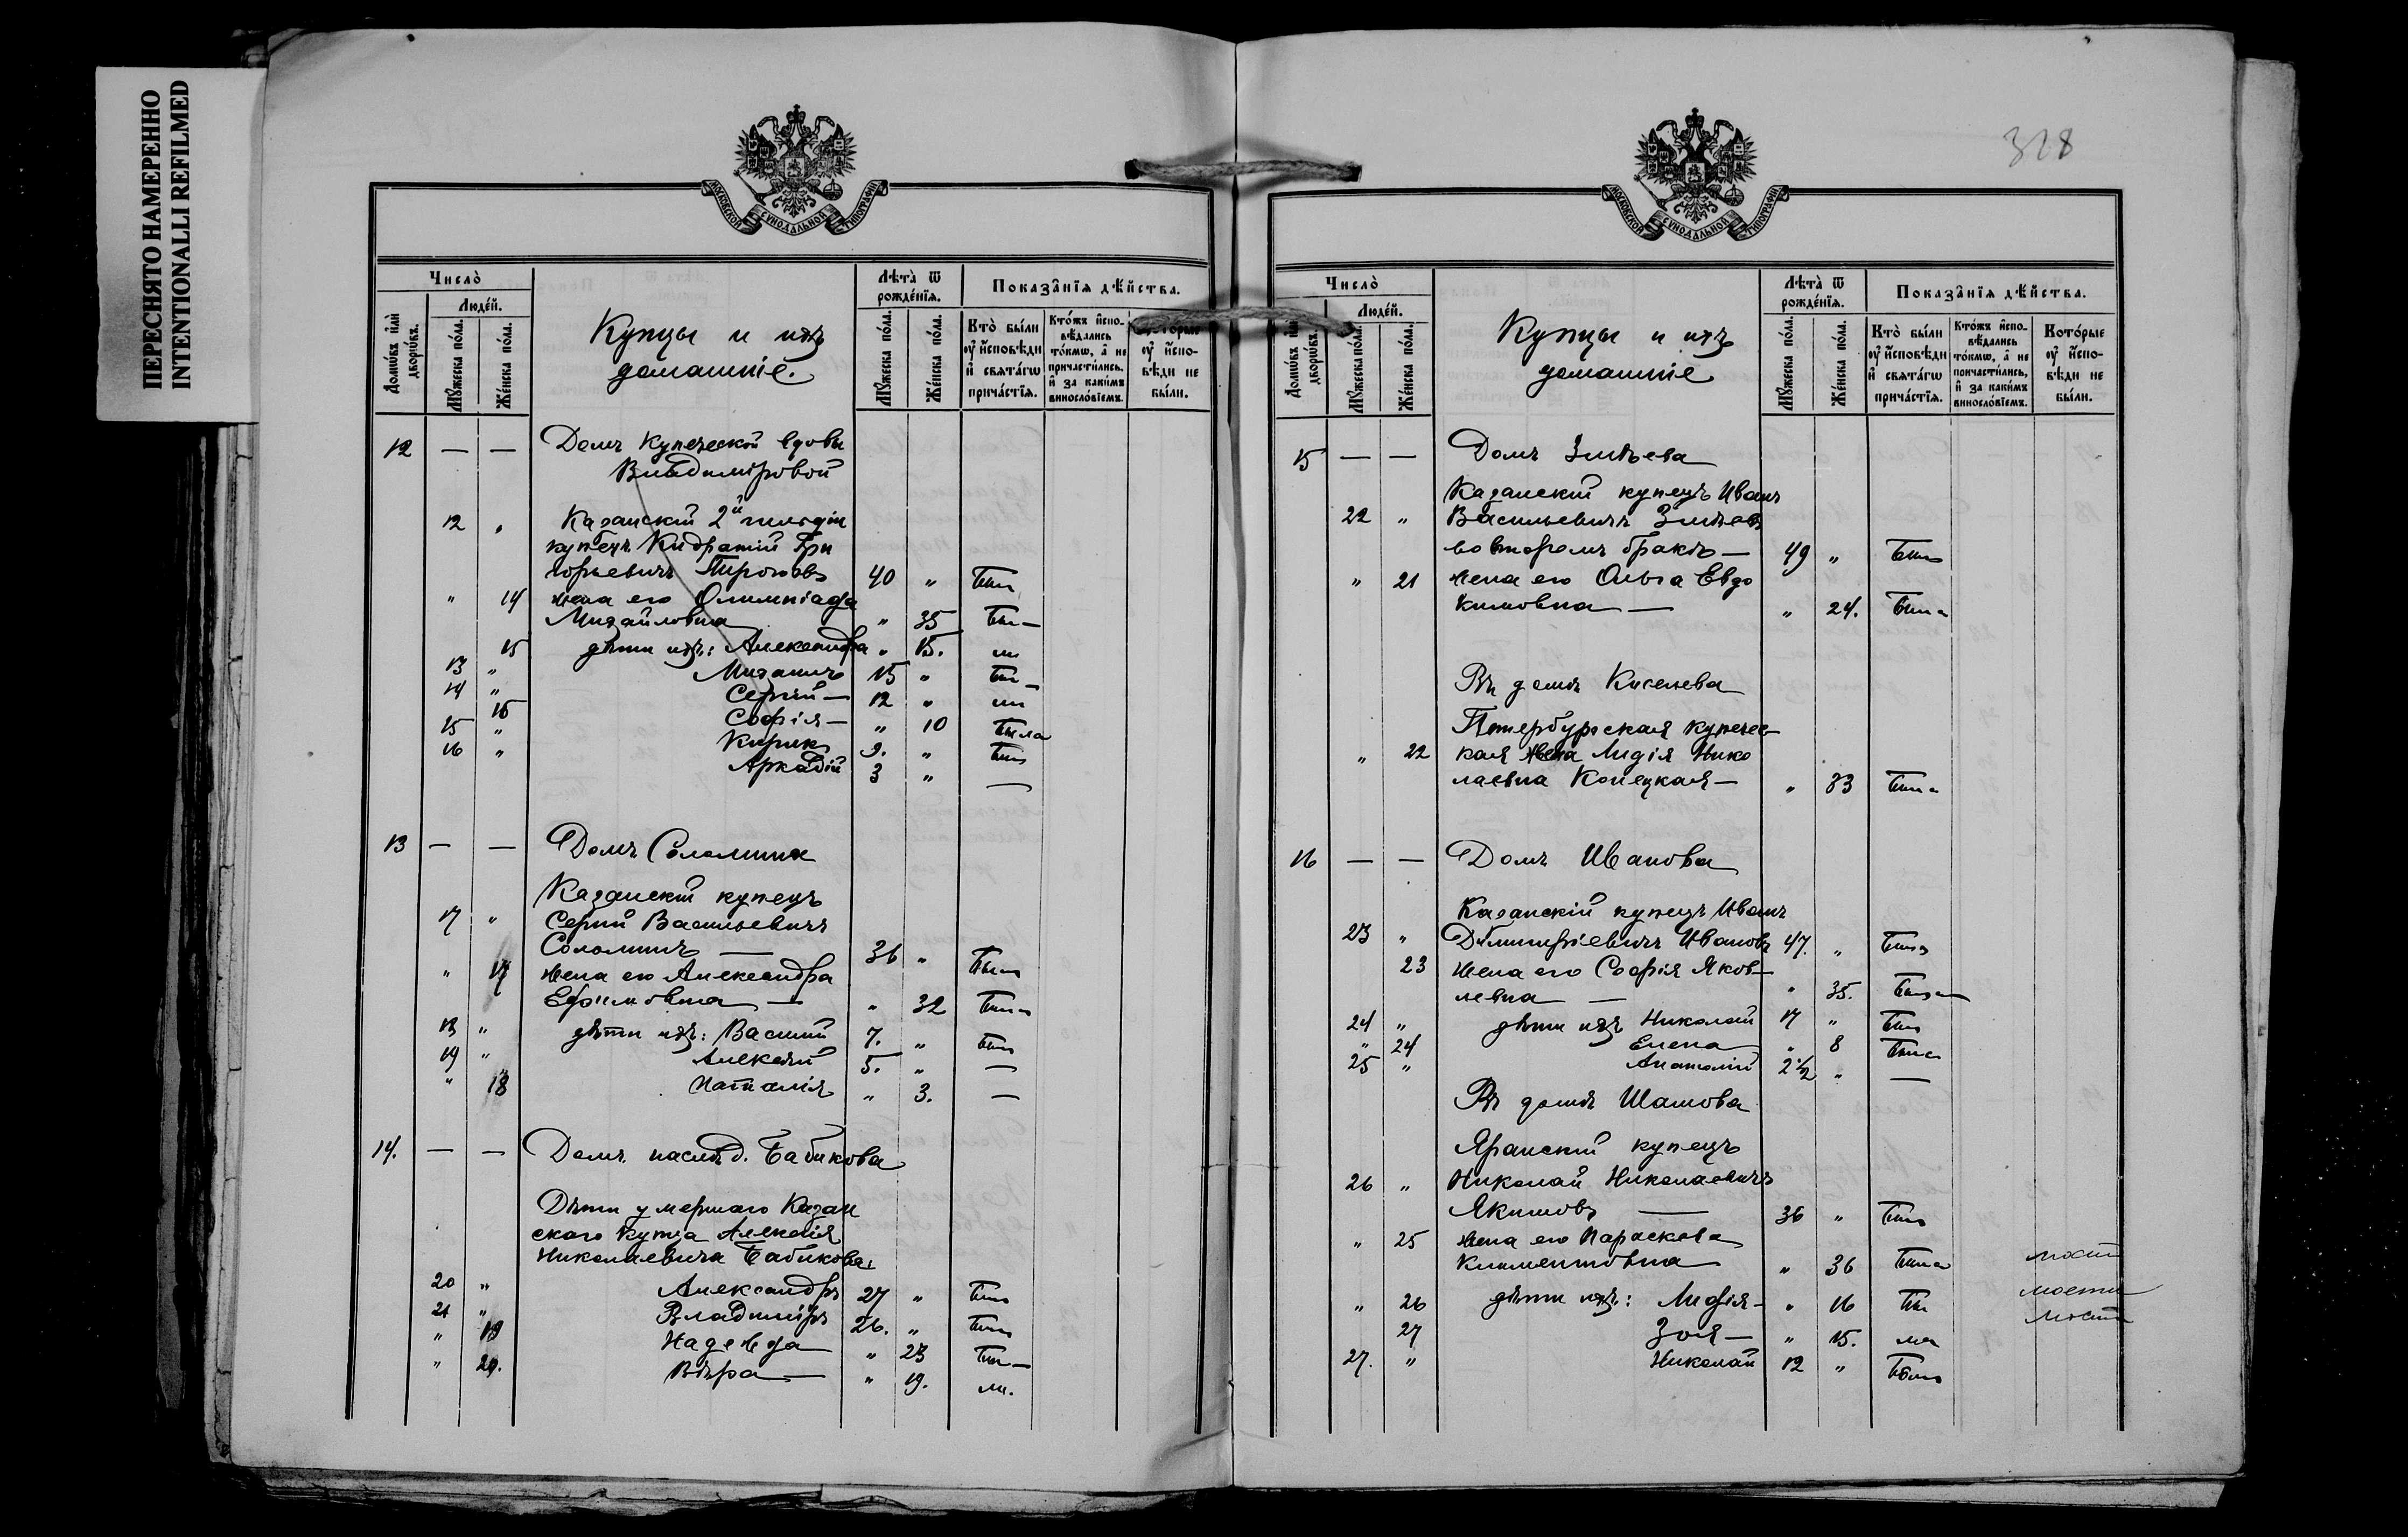 ПЕРЕСНЯТО НАМЕРЕННО
INTENTIONALLI REFILMED
МОСКОВСКОЙ СѴНОДАЛЬНОЙ ТИПОГРАФІИ
Число̀
Домѡ́въ и҆лѝ дворѡ́въ.
Люде́й.
Мꙋ́жеска по́ла.
Же́нска по́ла.
Купцы и ихъ
домашніе.
Лѣта̀ ѿ рожде́нїѧ.
Мꙋ́жеска по́ла.
Же́нска по́ла.
Показа̂нїѧ дѣ́йства.
Кто̀ бы́ли ᲂу҆ и҆сповѣди и҆ свѧта́гѡ прича́стїѧ.
Кто́жъ и҆спо-вѣдались то́кмѡ, а҆ не причасти́лись, и҆ за каки́мъ виносло́вїемъ.
Кото́рые ᲂу҆ и҆спо-вѣди не бы́ли.
12 — — Домъ Купеческой вдовы
Владиміровой
12 „ Казанскій 2й гильдіи
купецъ Кидратій Гри
горьевичъ Пироговъ 40 „ Былъ
„ 14 жена его Олимпіада
Михайловна „ 35 Был—
15 дѣти ихъ: Александра „ 15. ли
13 „ Михаилъ 13 „ Был—
14 „ Сергѣй — 12 „ ли
16 Софія — „ 10 Была
15 „ Кирикъ 9. „ Былъ
16 „ Аркадій 3 „ —
13 — — Домъ Соломина
Казанскій купецъ
17 „ Сергѣй Васильевичъ
Соломинъ — 36 „ Былъ
„ 17 жена его Александра
Ефимовна — „ 32 Была
18 „ дѣти ихъ: Василій 7. „ Былъ
19 „ Алексѣй 5. „ —
„ 18 Наталія „ 3. —
14. — — Домъ наслѣд. Бабикова
Дѣти умершаго Казан
скаго Купца Алексѣя
Николаевича Бабикова:
20 „ Александръ 27 „ Былъ
21 „ Владиміръ 26. „ Былъ
„ 19 Надежда „ 23 Был—
„ 20. Вѣра — „ 19. ли.
328
МОСКОВСКОЙ СѴНОДАЛЬНОЙ ТИПОГРАФІИ
Число̀
Домѡ́въ и҆лѝ дворѡ́въ.
Люде́й.
Мꙋ́жеска по́ла.
Же́нска по́ла.
Купцы и ихъ
домашніе
Лѣта̀ ѿ рожде́нїѧ.
Мꙋ́жеска по́ла.
Же́нска по́ла.
Показа̂нїѧ дѣ́йства.
Кто̀ бы́ли ᲂу҆ и҆сповѣди и҆ свѧта́гѡ прича́стїѧ.
Кто́жъ и҆спо-вѣдались то́кмѡ, а҆ не причасти́лись, и҆ за каки́мъ виносло́вїемъ.
Кото́рые ᲂу҆ и҆спо-вѣди не бы́ли.
15 — — Домъ Змѣева
Казанскій купецъ Иванъ
22 „ Васильевичъ Змѣевъ
во второмъ бракѣ — 49 „ Былъ
„ 21 жена его Ольга Евдо
кимовна — „ 24. Была
Въ домѣ Киселева
Петербургская купечес
„ 22 кая жена Лидія Нико
лаевна Копецкая — „ 33 Была
16 — — Домъ Иванова
Казанскій купецъ Иванъ
23 „ Дѣмитріевичъ Ивановъ 47. „ Былъ
23 жена его Софія Яков—
левна — „ 35. Была
24 „ дѣти ихъ Николай 17 „ Былъ
„ 24 Елена „ 8 Была
25 „ Анатолій 2½ „ —
Въ домѣ Шамова
Яранскій купецъ
26 „ Николай Николаевичъ
Якимовъ — 36 „ Былъ
„ 25 жена его Параскева
Климентовна „ 36 Была
„ 26 дѣти ихъ: Лидія — „ 16 Бы
27 Зоя — „ 15. ла
27. „ Николай 12 „ Былъ